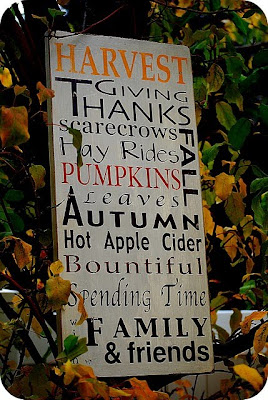 HARVEST
GIVING
THANKS
FALL
scarecrows
Hay Rides
PUMPKINS
Leaves
AUTUMN
Hot Apple Cider
Bountiful
Spending Time
FAMILY
& friends